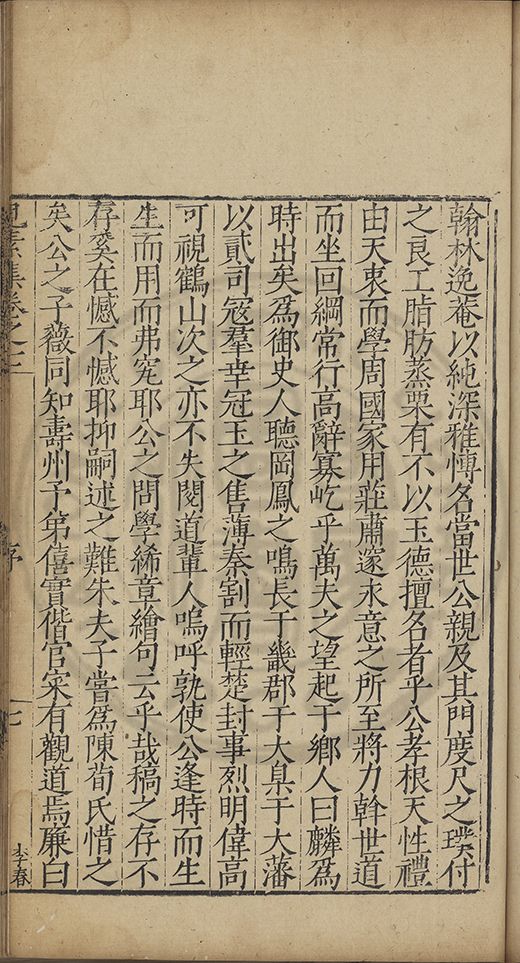 翰林逸菴以純深雅慱名當世公親及其門度尺之璞付
之良工脂肪蒸栗有不以玉德擅名者乎公孝根天性禮
由天衷而學周國家用莊肅邃永意之所至將力斡世道
而坐回綱常行高辭寡屹乎萬夫之望起于鄉人曰麟爲
時出矣爲御史人聽岡鳳之鳴長于畿郡于大臬于大藩
以貳司寇羣幸冠玉之售薄秦割而輕楚封事烈明偉高
可視鶴山次之亦不失閱道輩人嗚呼孰使公逢時而生
生而用而弗宄耶公之問學絺章繪句云乎哉稿之存不
存奚在憾不憾耶抑嗣述之難朱夫子嘗爲陳荀氏惜之
矣公之子薇同知壽州予弟僖實偕官宋有觀道焉廉曰
集卷之三
序
李春